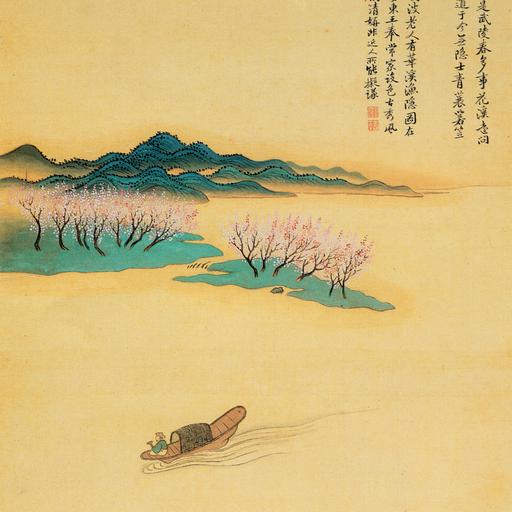 是武陵春多事花溪去問
道于今无隱士青蓑箬笠
波老人有華溪漁隱圖在
東王奉常家設色古秀風
清妍非近人所能擬議